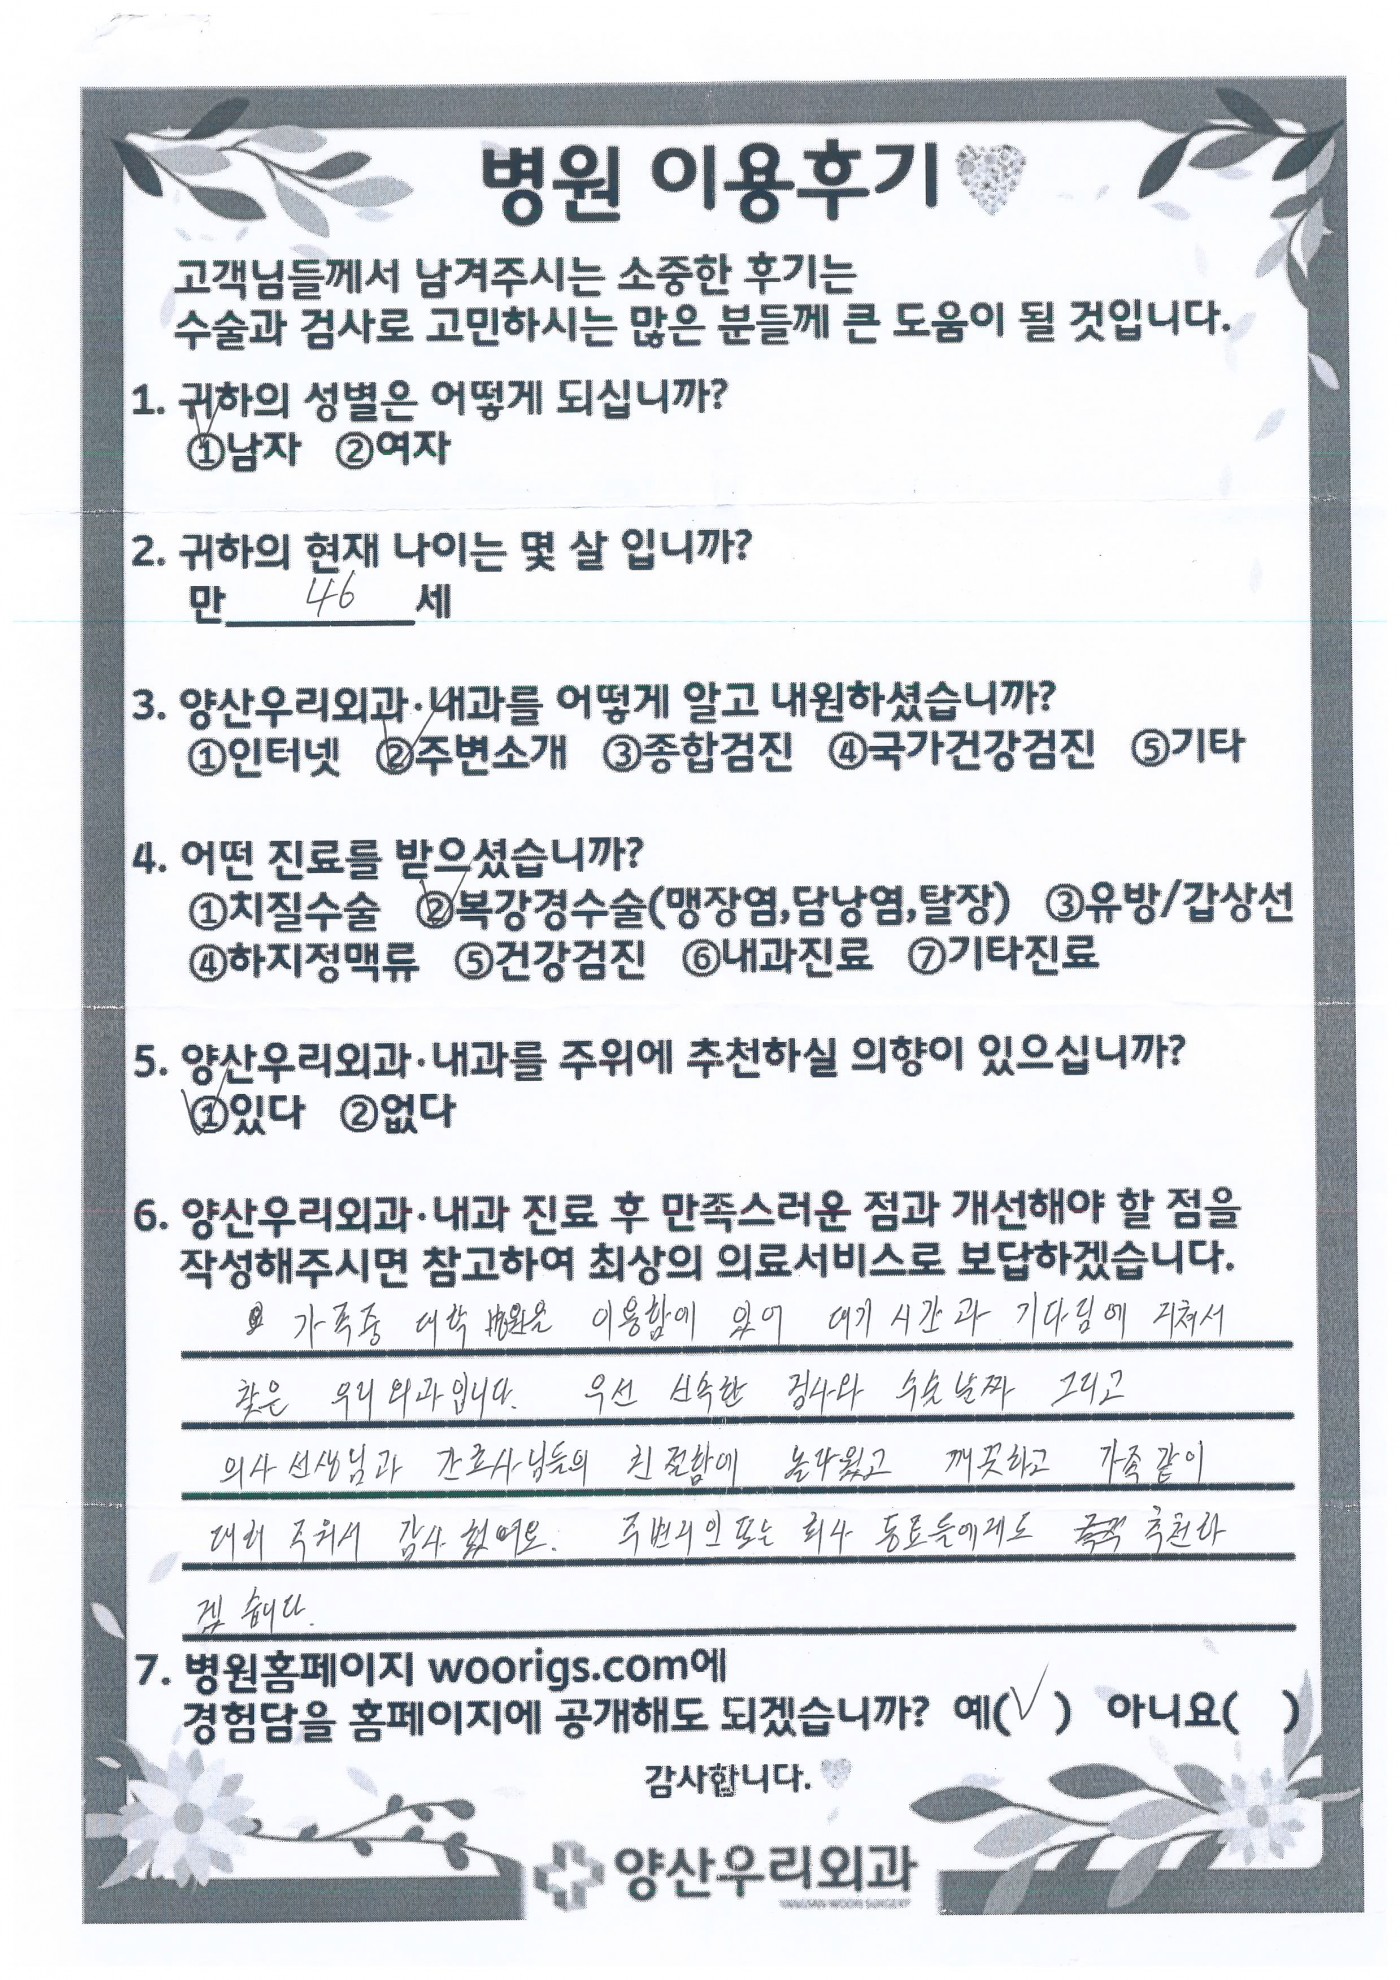 병원 이용후기
고객님들께서 남겨주시는 소중한 후기는
수술과 검사로 고민하시는 많은 분들께 큰 도움이 될 것입니다.
1. 귀하의 성별은 어떻게 되십니까?
①남자 ②여자
2. 귀하의 현재 나이는 몇 살 입니까?
만 46 세
3. 양산우리외과·내과를 어떻게 알고 내원하셨습니까?
①인터넷 ②주변소개 ③종합검진 ④국가건강검진 ⑤기타
4. 어떤 진료를 받으셨습니까?
①치질수술 ②복강경수술(맹장염,담낭염,탈장) ③유방/갑상선
④하지정맥류 ⑤건강검진 ⑥내과진료 ⑦기타진료
5. 양산우리외과·내과를 주위에 추천하실 의향이 있으십니까?
①있다 ②없다
6. 양산우리외과·내과 진료 후 만족스러운 점과 개선해야 할 점을
작성해주시면 참고하여 최상의 의료서비스로 보답하겠습니다.
가족중 대학 병원을 이용함에 있어 대기 시간과 기다림에 지쳐서
찾은 우리 외과입니다. 우선 신속한 검사와 수술날짜 그리고
의사 선생님과 간호사님들의 친절함에 놀라웠고 깨끗하고 가족같이
대해 주워서 감사 했어요. 주변지인 또는 회사 동료들에게도 꼭 추천하
겠 습니다.
7. 병원홈페이지 woorigs.com에
경험담을 홈페이지에 공개해도 되겠습니까? 예(√) 아니요( )
감사합니다.
양산우리외과
YANGSAN WOORI SURGERY